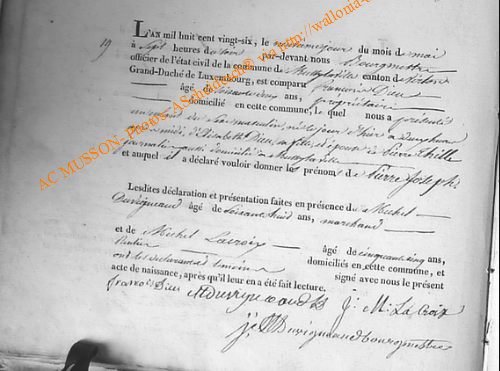 L'AN mil huit cent vingt-six, le jour du mois de mai
19
à sept heures du par-devant nous Bourgmestre
officier de l'état civil de la commune de canton de
Grand-Duché de Luxembourg, est comparu françois Dieu
âgé de ans, propriétaire
domicilié en cette commune, lequel nous a présenté
un enfant du sexe masculin, né le jour d'hier à
midi, d'Elisabeth Dieu, sa fille, et épouse de pierre thille
journalier, aussi domicilié à
et auquel il a déclaré vouloir donner les prénoms de Pierre Joseph
Lesdites déclaration et présentation faites en présence de Michel
Duvigneaud âgé de soixante huit ans, marchand
et de Michel Lacroix âgé de cinquante cinq ans,
domiciliés en cette commune, et
ont les déclarant et témoins signé avec nous le présent
acte de naissance, après qu'il leur en a été fait lecture.
françois Dieu MDuvigneaud J: M: La Croix
Duvigneaud bourgmestre
AC MUSSON-Photos A.Scheider® via http://wallonia